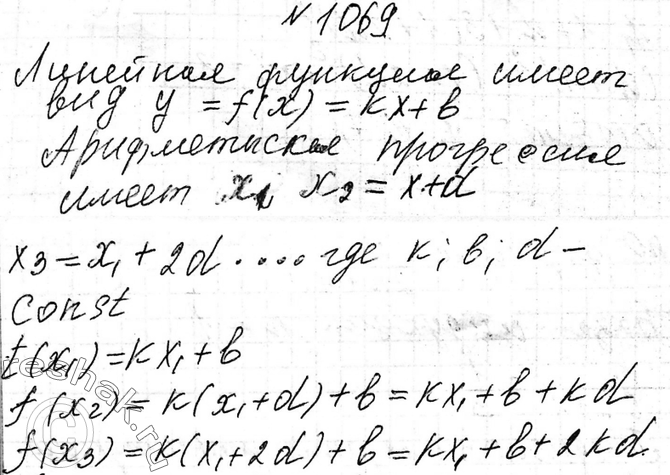 № 1069
Линейная функция имеет
вид y = f(x) = kx + b
Арифметиская прогрессия
имеет x₁ x₂ = x + d
x₃ = x₁ + 2d .... где k; b; d –
const
f(x₁) = kx₁ + b
f(x₂) = k(x₁ + d) + b = kx₁ + b + kd
f(x₃) = k(x₁ + 2d) + b = kx₁ + b + 2kd.
reshak.ru